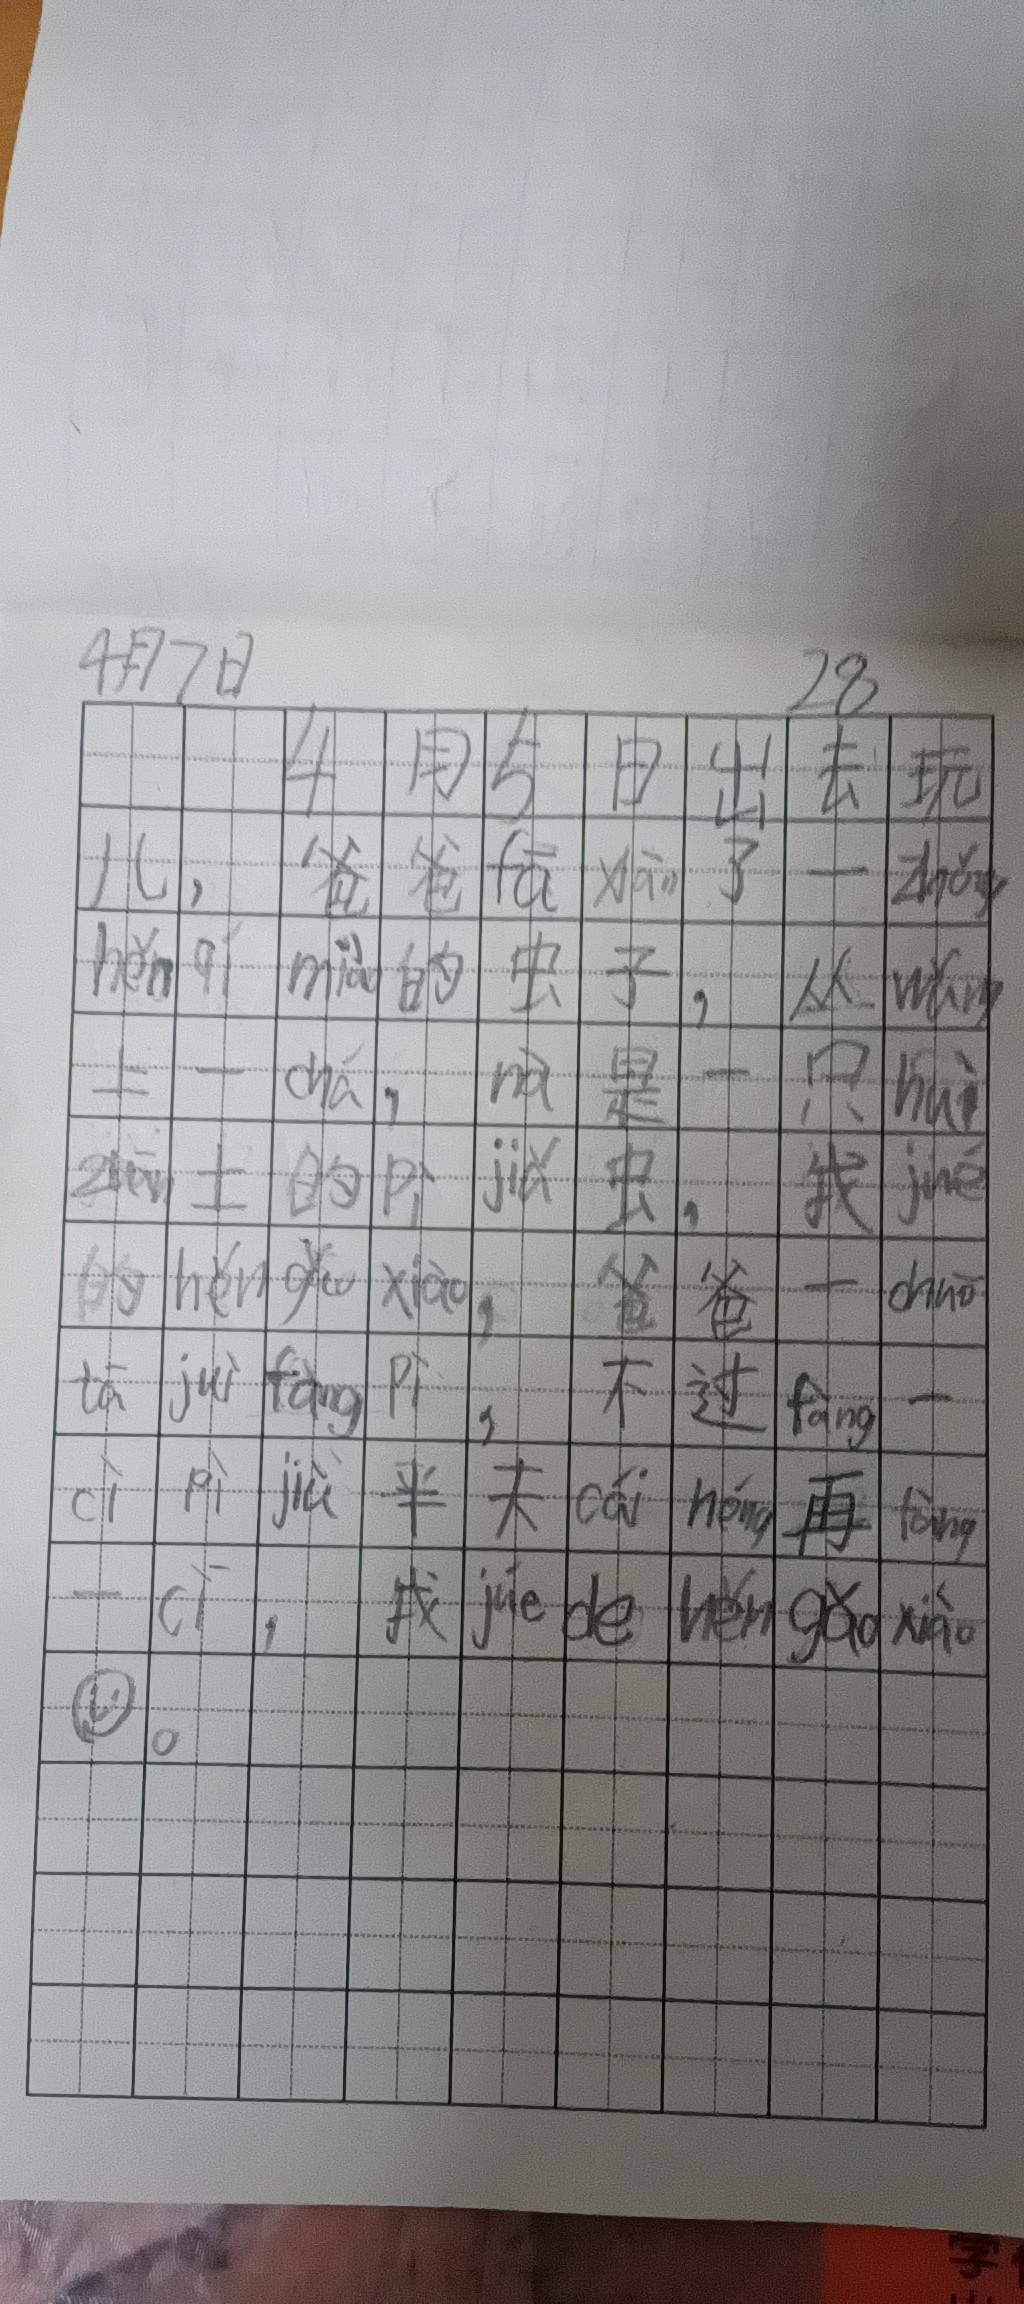 4月7日 28
4月5日出去玩
儿，爸爸fā xiàn了一zhǒng
hěn qí miào的虫子，从wǎng
上一chá，nà是一只huì
zuān土的pì jiǎ虫，我jué
的hěn gǎo xiào，爸爸一chuō
tā juì fàng pì，不过fàng一
cì pì jiù半天cái néng再fàng
一cì，我júe de hěn gǎo xiào
。
字